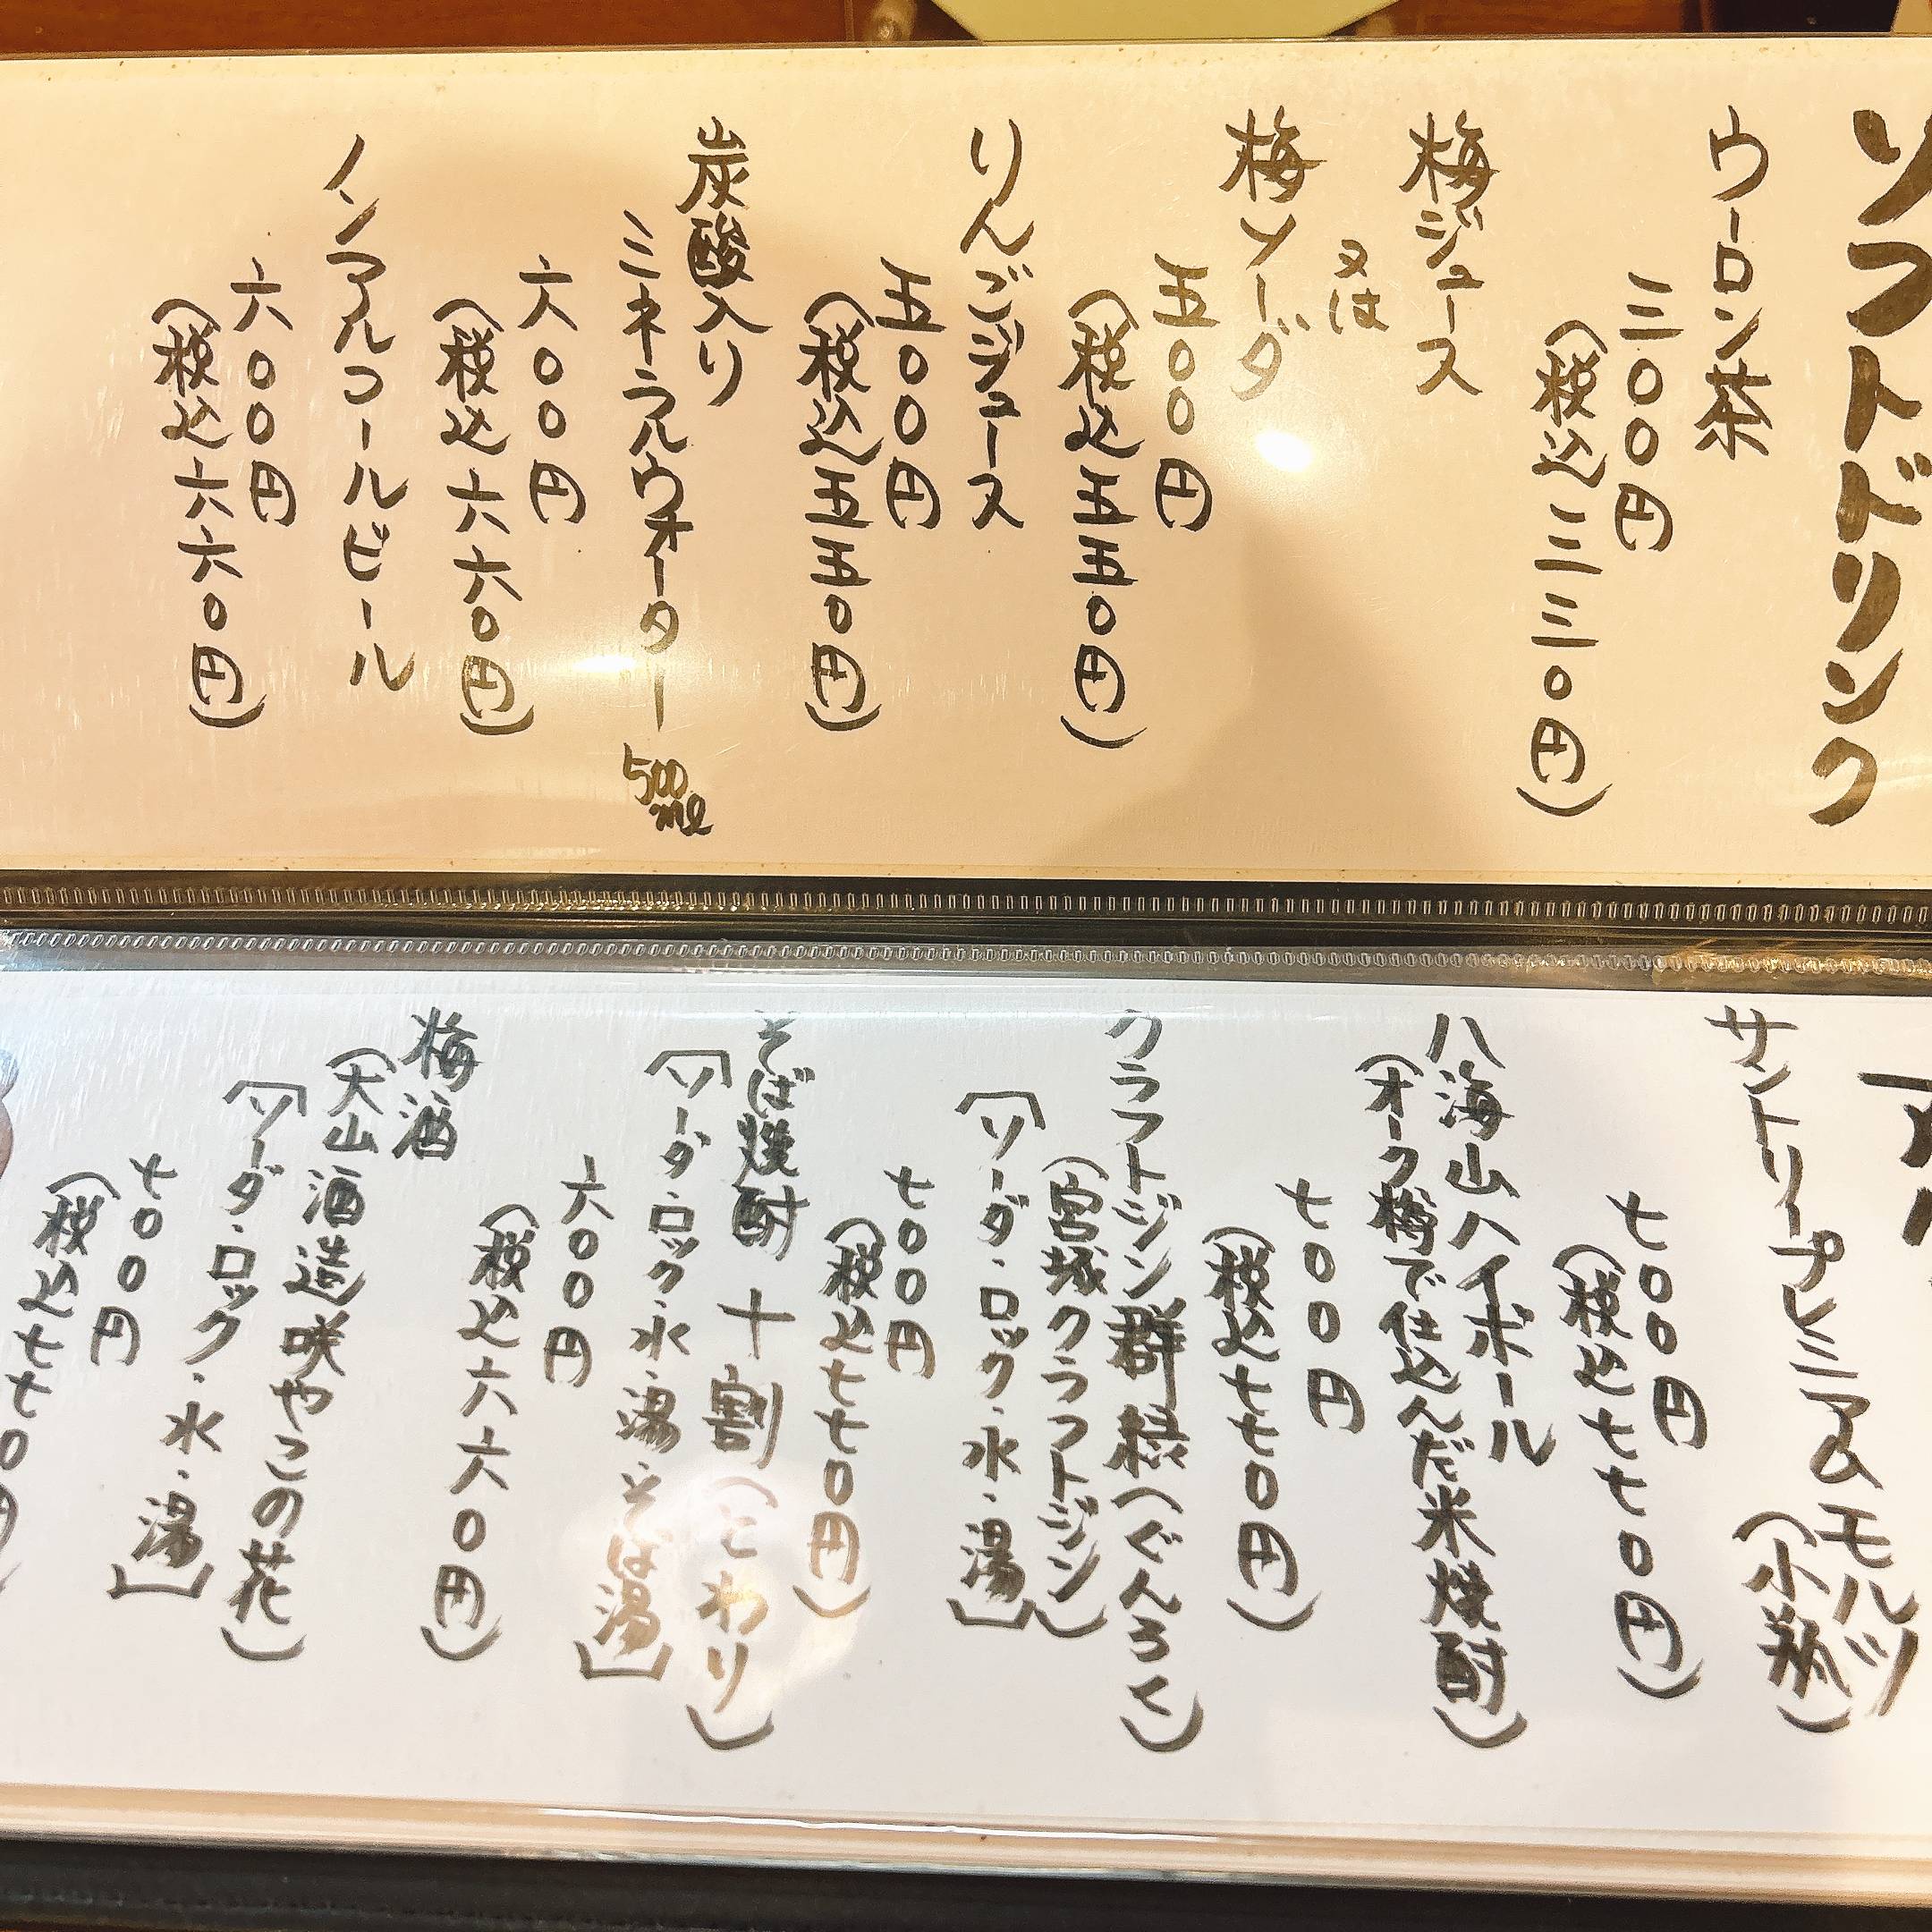 ソフトドリンク
ウーロン茶
三〇〇円
(税込三三〇円)
梅ジュース
又は
梅ソーダ
五〇〇円
(税込五五〇円)
りんごジュース
五〇〇円
(税込五五〇円)
炭酸入り
ミネラルウォーター 500ml
六〇〇円
(税込六六〇円)
ノンアルコールビール
六〇〇円
(税込六六〇円)
サントリープレミアムモルツ
(小瓶)
七〇〇円
(税込七七〇円)
八海山ハイボール
(オーク樽で仕込んだ米焼酎)
七〇〇円
(税込七七〇円)
クラフトジン群緑(ぐんろく)
(宮城クラフトジン)
[ソーダ・ロック・水・湯]
七〇〇円
(税込七七〇円)
そば焼酎 十割(とわり)
[ソーダ・ロック・水・湯・そば湯]
六〇〇円
(税込六六〇円)
梅酒
(大山酒造咲やこの花)
[ソーダ・ロック・水・湯]
七〇〇円
(税込七七〇円